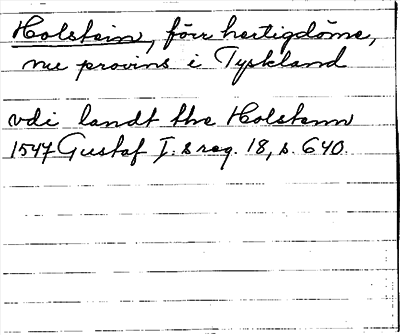 Holstein, förr hertigdöme,
nu provins i Tyskland
vdi landt the Holstenn
1547 Gustaf I:s reg. 18, s. 640.